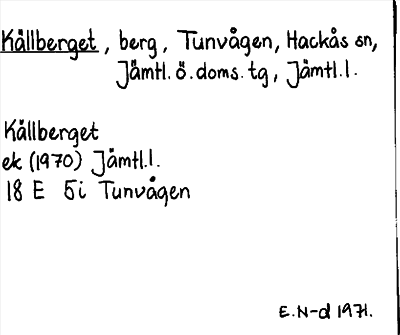 Kållberget, berg, Tunvågen, Hackås sn,
Jämtl. ö. doms. tg, Jämtl. l.
Kållberget
ek (1970) Jämtl. l.
18 E 5i Tunvågen
E. N-d 1971.